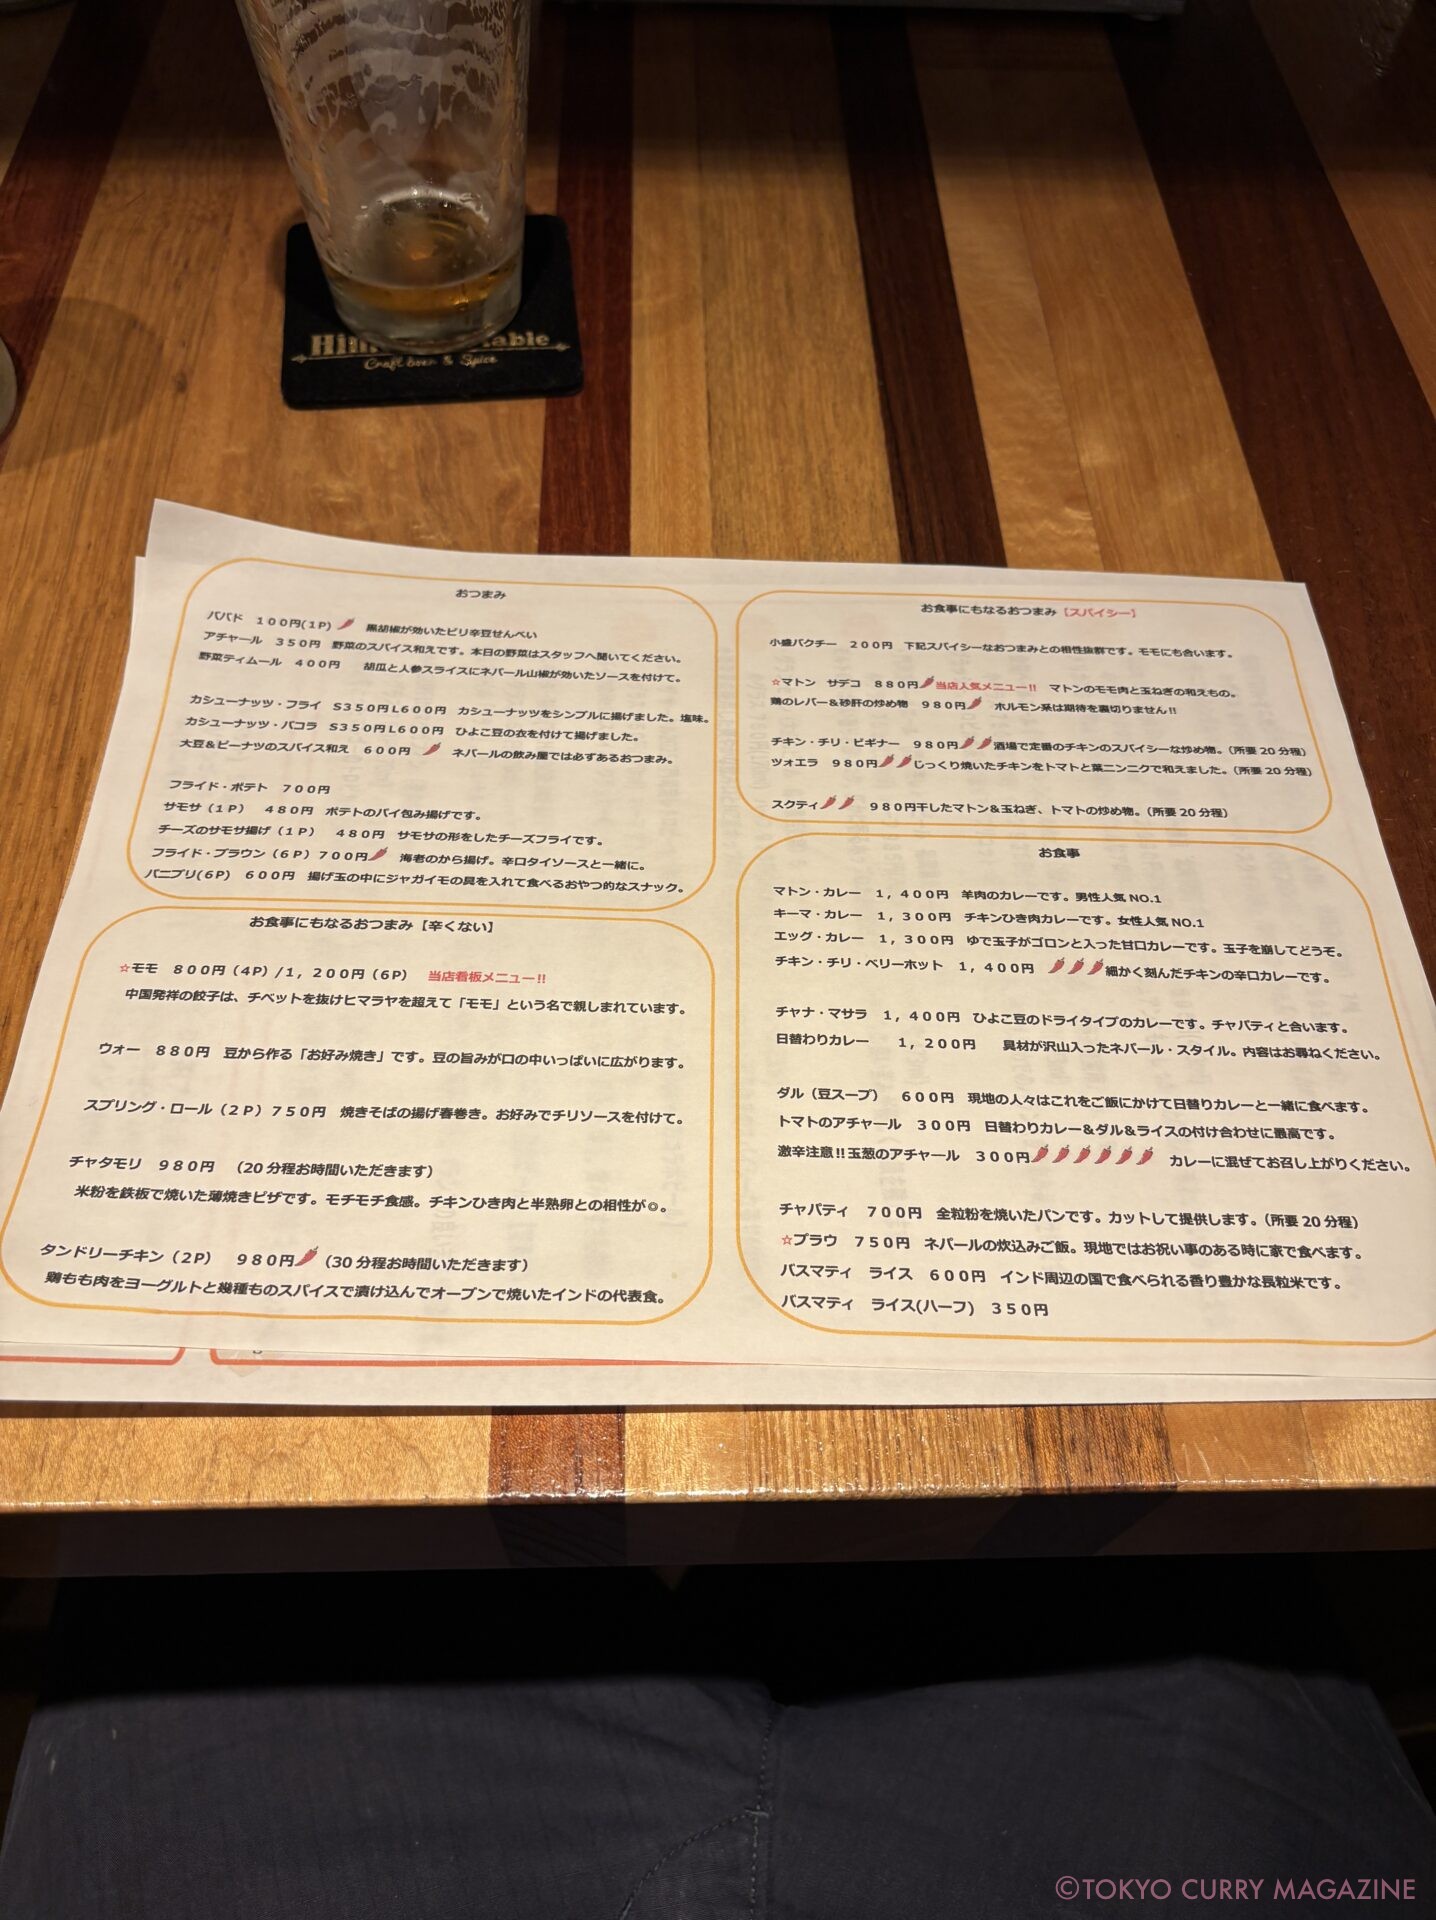 Craft beer & Spice
おつまみ
パパド 100円(1P) 黒胡椒が効いたピリ辛豆せんべい
アチャール 350円 野菜のスパイス和えです。本日の野菜はスタッフへ聞いてください。
野菜ティムール 400円 胡瓜と人参スライスにネパール山椒が効いたソースを付けて。
カシューナッツ・フライ S350円L600円 カシューナッツをシンプルに揚げました。塩味。
カシューナッツ・パコラ S350円L600円 ひよこ豆の衣を付けて揚げました。
大豆&ピーナツのスパイス和え 600円 ネパールの飲み屋では必ずあるおつまみ。
フライド・ポテト 700円
サモサ(1P) 480円 ポテトのパイ包み揚げです。
チーズのサモサ揚げ(1P) 480円 サモサの形をしたチーズフライです。
フライド・プラウン(6P)700円 海老のから揚げ。辛口タイソースと一緒に。
パニプリ(6P) 600円 揚げ玉の中にジャガイモの具を入れて食べるおやつ的なスナック。
お食事にもなるおつまみ【辛くない】
☆モモ 800円(4P)/1,200円(6P) 当店看板メニュー!!
中国発祥の餃子は、チベットを抜けヒマラヤを超えて「モモ」という名で親しまれています。
ウォー 880円 豆から作る「お好み焼き」です。豆の旨みが口の中いっぱいに広がります。
スプリング・ロール(2P)750円 焼きそばの揚げ春巻き。お好みでチリソースを付けて。
チャタモリ 980円 (20分程お時間いただきます)
米粉を鉄板で焼いた薄焼きピザです。モチモチ食感。チキンひき肉と半熟卵との相性が◎。
タンドリーチキン(2P) 980円 (30分程お時間いただきます)
鶏もも肉をヨーグルトと幾種ものスパイスで漬け込んでオーブンで焼いたインドの代表食。
お食事にもなるおつまみ【スパイシー】
小盛パクチー 200円 下記スパイシーなおつまみとの相性抜群です。モモにも合います。
☆マトン サデコ 880円 当店人気メニュー!! マトンのモモ肉と玉ねぎの和えもの。
鶏のレバー&砂肝の炒め物 980円 ホルモン系は期待を裏切りません!!
チキン・チリ・ビギナー 980円 酒場で定番のチキンのスパイシーな炒め物。(所要20分程)
ツォエラ 980円 じっくり焼いたチキンをトマトと葉ニンニクで和えました。(所要20分程)
スクティ 980円干したマトン&玉ねぎ、トマトの炒め物。(所要20分程)
お食事
マトン・カレー 1,400円 羊肉のカレーです。男性人気NO.1
キーマ・カレー 1,300円 チキンひき肉カレーです。女性人気NO.1
エッグ・カレー 1,300円 ゆで玉子がゴロンと入った甘口カレーです。玉子を崩してどうぞ。
チキン・チリ・ベリーホット 1,400円 細かく刻んだチキンの辛口カレーです。
チャナ・マサラ 1,400円 ひよこ豆のドライタイプのカレーです。チャパティと合います。
日替わりカレー 1,200円 具材が沢山入ったネパール・スタイル。内容はお尋ねください。
ダル(豆スープ) 600円 現地の人々はこれをご飯にかけて日替りカレーと一緒に食べます。
トマトのアチャール 300円 日替わりカレー&ダル&ライスの付け合わせに最高です。
激辛注意!!玉葱のアチャール 300円 カレーに混ぜてお召し上がりください。
チャパティ 700円 全粒粉を焼いたパンです。カットして提供します。(所要20分程)
☆プラウ 750円 ネパールの炊込みご飯。現地ではお祝い事のある時に家で食べます。
バスマティ ライス 600円 インド周辺の国で食べられる香り豊かな長粒米です。
バスマティ ライス(ハーフ) 350円
©TOKYO CURRY MAGAZINE